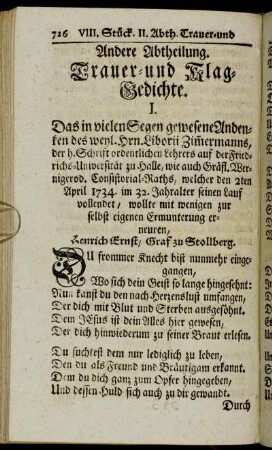 726 VIII. Stück. II. Abth. Trauer-und
Andere Abtheilung.
Trauer-und Klag-
Gedichte.
I.
Das in vielen Segen gewesene Anden-
ken des weyl. Hrn. Liborii Zim̄ermanns,
der h. Schrift ordentlichen Lehrers auf der Fried-
richs-Universität zu Halle, wie auch Gräfl. Wer-
nigerod. Consistorial-Raths, welcher den 2ten
April 1734. im 32. Jahralter seinen Lauf
vollendet, wollte mit wenigen zur
selbst eigenen Ermunterung er-
neuren,
Henrich Ernst, Graf zu Stollberg.
DU frommer Knecht bist nunmehr einge-
gangen,
Wo sich dein Geist so lange hingesehnt:
Nun kanst du den nach Herzenslust umfangen,
Der dich mit Blut und Sterben ausgesöhnt.
Dein JEsus ist dein Alles hier gewesen,
Der dich hinwiederum zu seiner Braut erlesen.
Du suchtest dem nur lediglich zu leben,
Den du als Freund und Bräutigam erkannt.
Dem du dich ganz zum Opfer hingegeben,
Und dessen Huld sich auch zu dir gewandt.
Durch